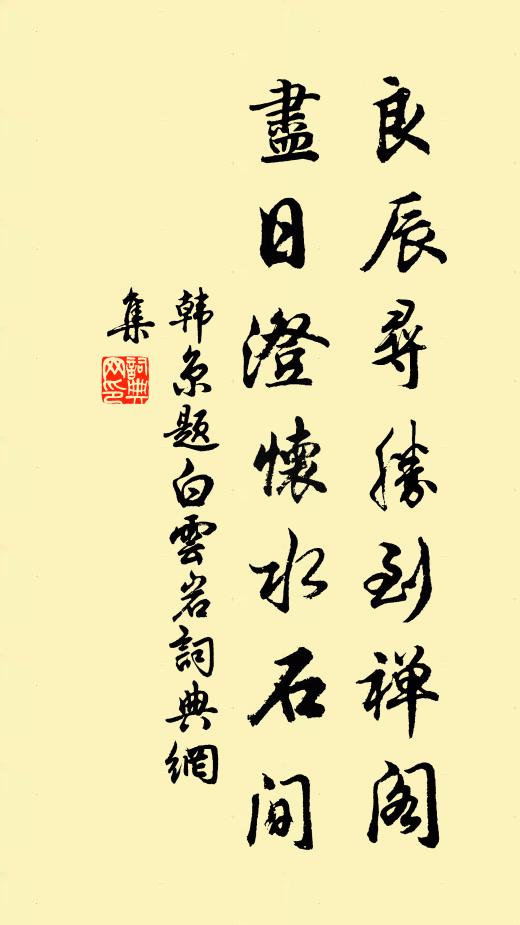 良辰尋勝到禅阁
盡日澄懷水石间
韩京题白雲岩詞典網
集
詞典
网印